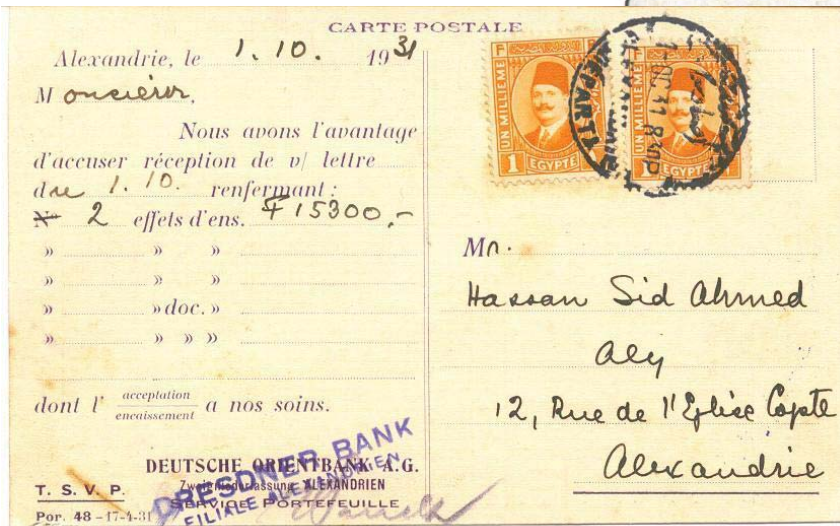 CARTE POSTALE
Alexandrie, le 1.10. 1931
Monsieur,
Nous avons l'avantage
d'accuser réception de v/ lettre
du 1.10. renfermant :
2 effets d'ens. 15300,-
» » »
» » »
» » doc. »
» » » »
dont l' acceptation
encaissement a nos soins.
DEUTSCHE ORIENTBANK A.G.
Zweigniederlassung ALEXANDRIEN
SERVICE PORTEFEUILLE
T. S. V. P.
Por. 48 - 17-4-31
DRESDNER BANK
FILIALE ALEXANDRIEN
UN MILLIEME
1 EGYPTE
UN MILLIEME
1 EGYPTE
DEPART
Mr.
Hassan Sid Ahmed
Aly
12, Rue de l'Eglise Copte
Alexandrie